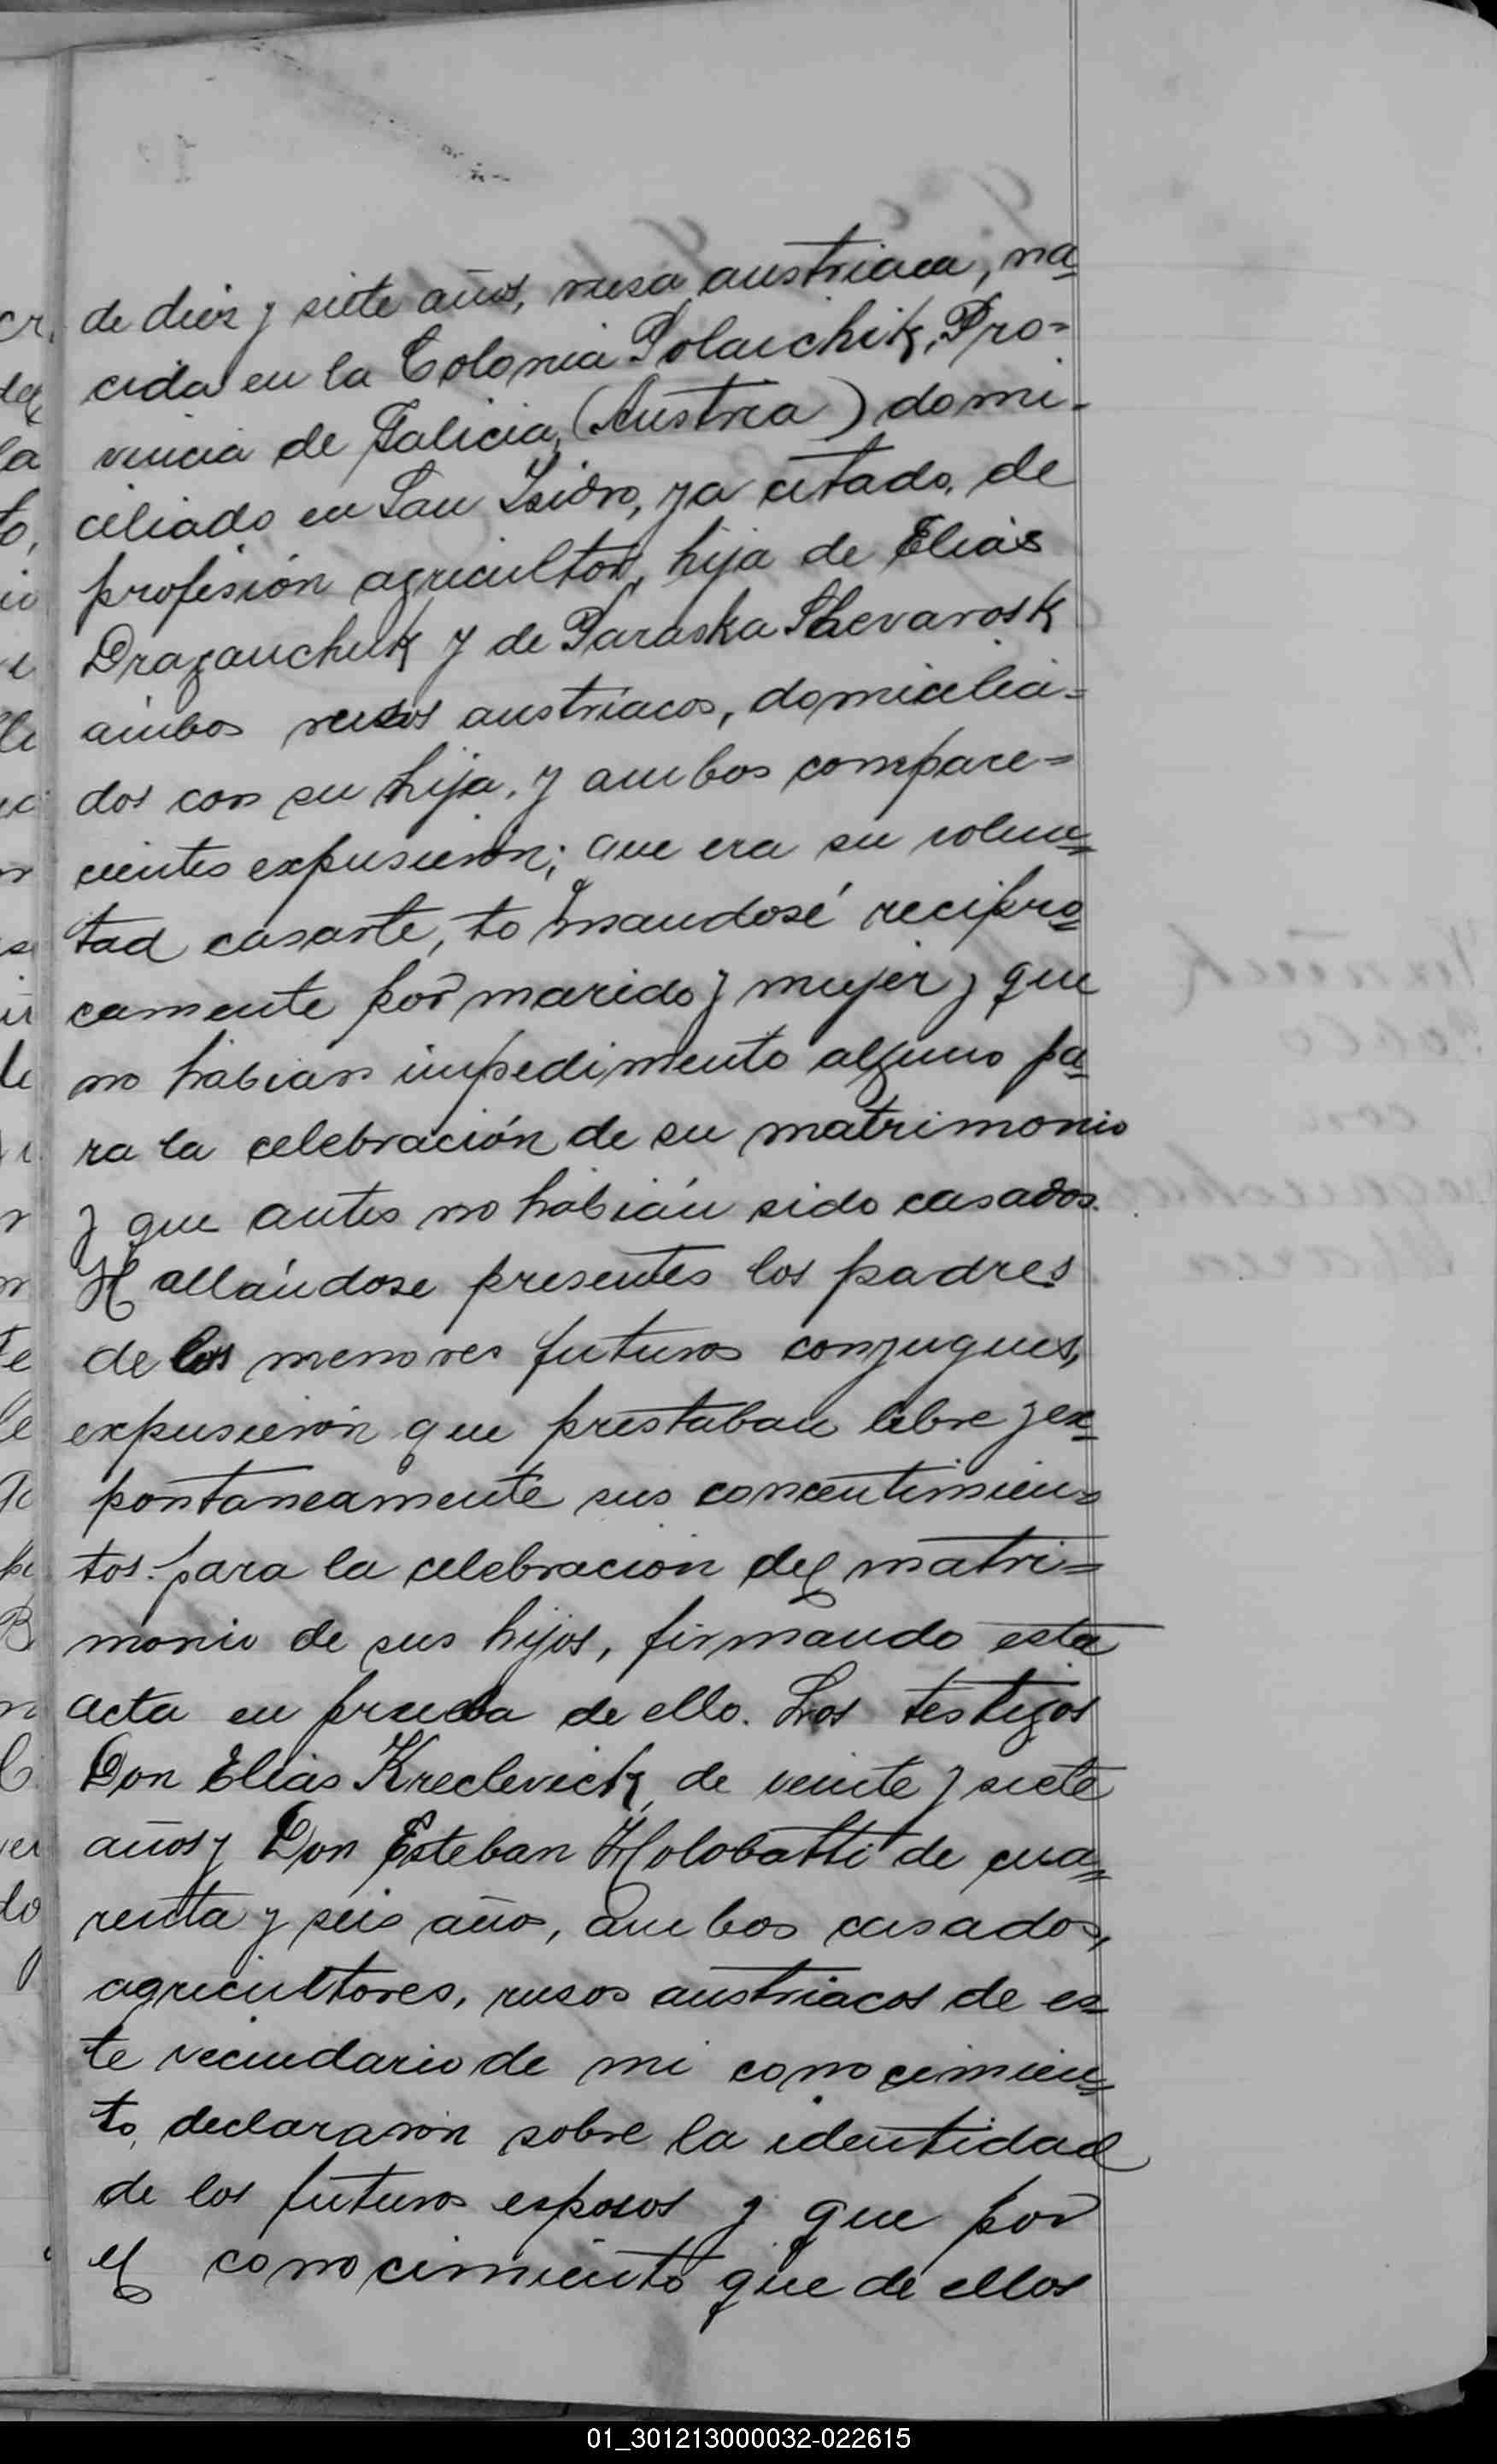 de diez y siete años, rusa austriaca, na-
cida en la Colonia Polaichik, Pro=
vincia de Galicia, (Austria) domi-
ciliado en San Isidro, ya citado, de
profesión agricultor, hija de Elias
Draganchuk y de Paraska Shevarosk
ambos rusos austríacos, domicilia=
dos con su hija, y ambos compare=
cientes expusierón; que era su volun=
tad casarte, to mandosé recipro=
camente por marido y mujer y que
no habian impedimento alguno pa=
ra la celebración de su matrimonio
y que antes no habián sido casados.
Hallándose presentes los padres
de los menores futuros conyugues,
expusierón que prestaban libre y ex=
pontaneamente sus concentimien=
tos para la celebracion del matri=
monio de sus hijos, firmando esta
acta en prueba de ello. Los testigos
Don Elias Kreclevick, de veinte y siete
años y Don Esteban Holobatti de cua=
renta y seis años, ambos casados,
agricultores, rusos austriacos de es=
te vecindario de mi conocimien=
to, declararón sobre la identidad
de los futuros esposos y que por
el conocimiento que de ellos
01_301213000032-022615